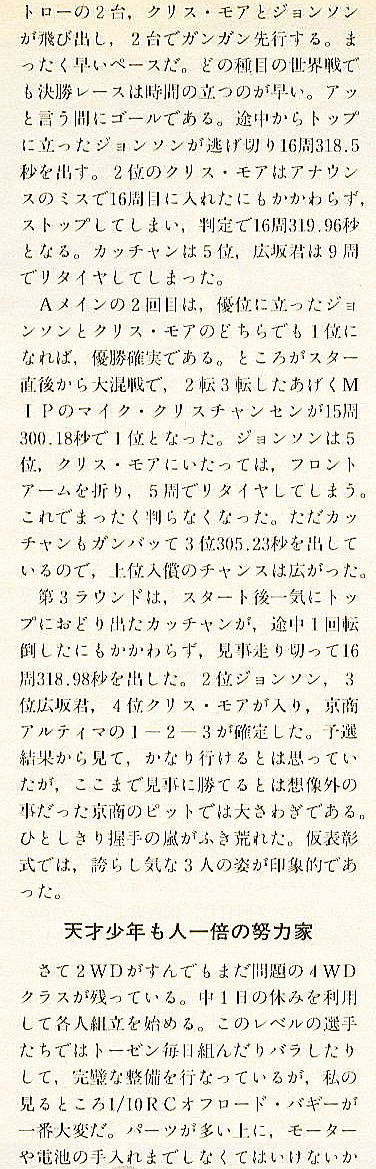 トローの2台，クリス・モアとジョンソン
が飛び出し，2台でガンガン先行する。ま
ったく早いペースだ。どの種目の世界戦で
も決勝レースは時間の立つのが早い。アッ
と言う間にゴールである。途中からトップ
に立ったジョンソンが逃げ切り16周318.5
秒を出す。2位のクリス・モアはアナウン
スのミスで16周目に入れたにもかかわらず，
ストップしてしまい，判定で16周319.96秒
となる。カッチャンは5位，広坂君は9周
でリタイヤしてしまった。
　Aメインの2回目は，優位に立ったジョ
ンソンとクリス・モアのどちらでも1位に
なれば，優勝確実である。ところがスター
直後から大混戦で，2転3転したあげくM
IPのマイク・クリスチャンセンが15周
300.18秒で1位となった。ジョンソンは5
位，クリス・モアにいたっては，フロント
アームを折り，5周でリタイヤしてしまう。
これでまったく判らなくなった。ただカッ
チャンもガンバッて3位305.23秒を出して
いるので，上位入償のチャンスは広がった。
　第3ラウンドは，スタート後一気にトッ
プにおどり出たカッチャンが，途中1回転
倒したにもかかわらず，見事走り切って16
周318.98秒を出した。2位ジョンソン，3
位広坂君，4位クリス・モアが入り，京商
アルティマの1－2－3が確定した。予選
結果から見て，かなり行けるとは思ってい
たが，ここまで見事に勝てるとは想像外の
事だった京商のピットでは大さわぎである。
ひとしきり握手の嵐がふき荒れた。仮表彰
式では，誇らし気な3人の姿が印象的であ
った。
天才少年も人一倍の努力家
　さて2WDがすんでもまだ問題の4WD
クラスが残っている。中1日の休みを利用
して各人組立を始める。このレベルの選手
たちではトーゼン毎日組んだりバラしたり
して，完璧な整備を行なっているが，私の
見るところ1/10RCオフロード・バギーが
一番大変だ。パーツが多い上に，モーター
や電池の手入れまでしなくてはいけないか